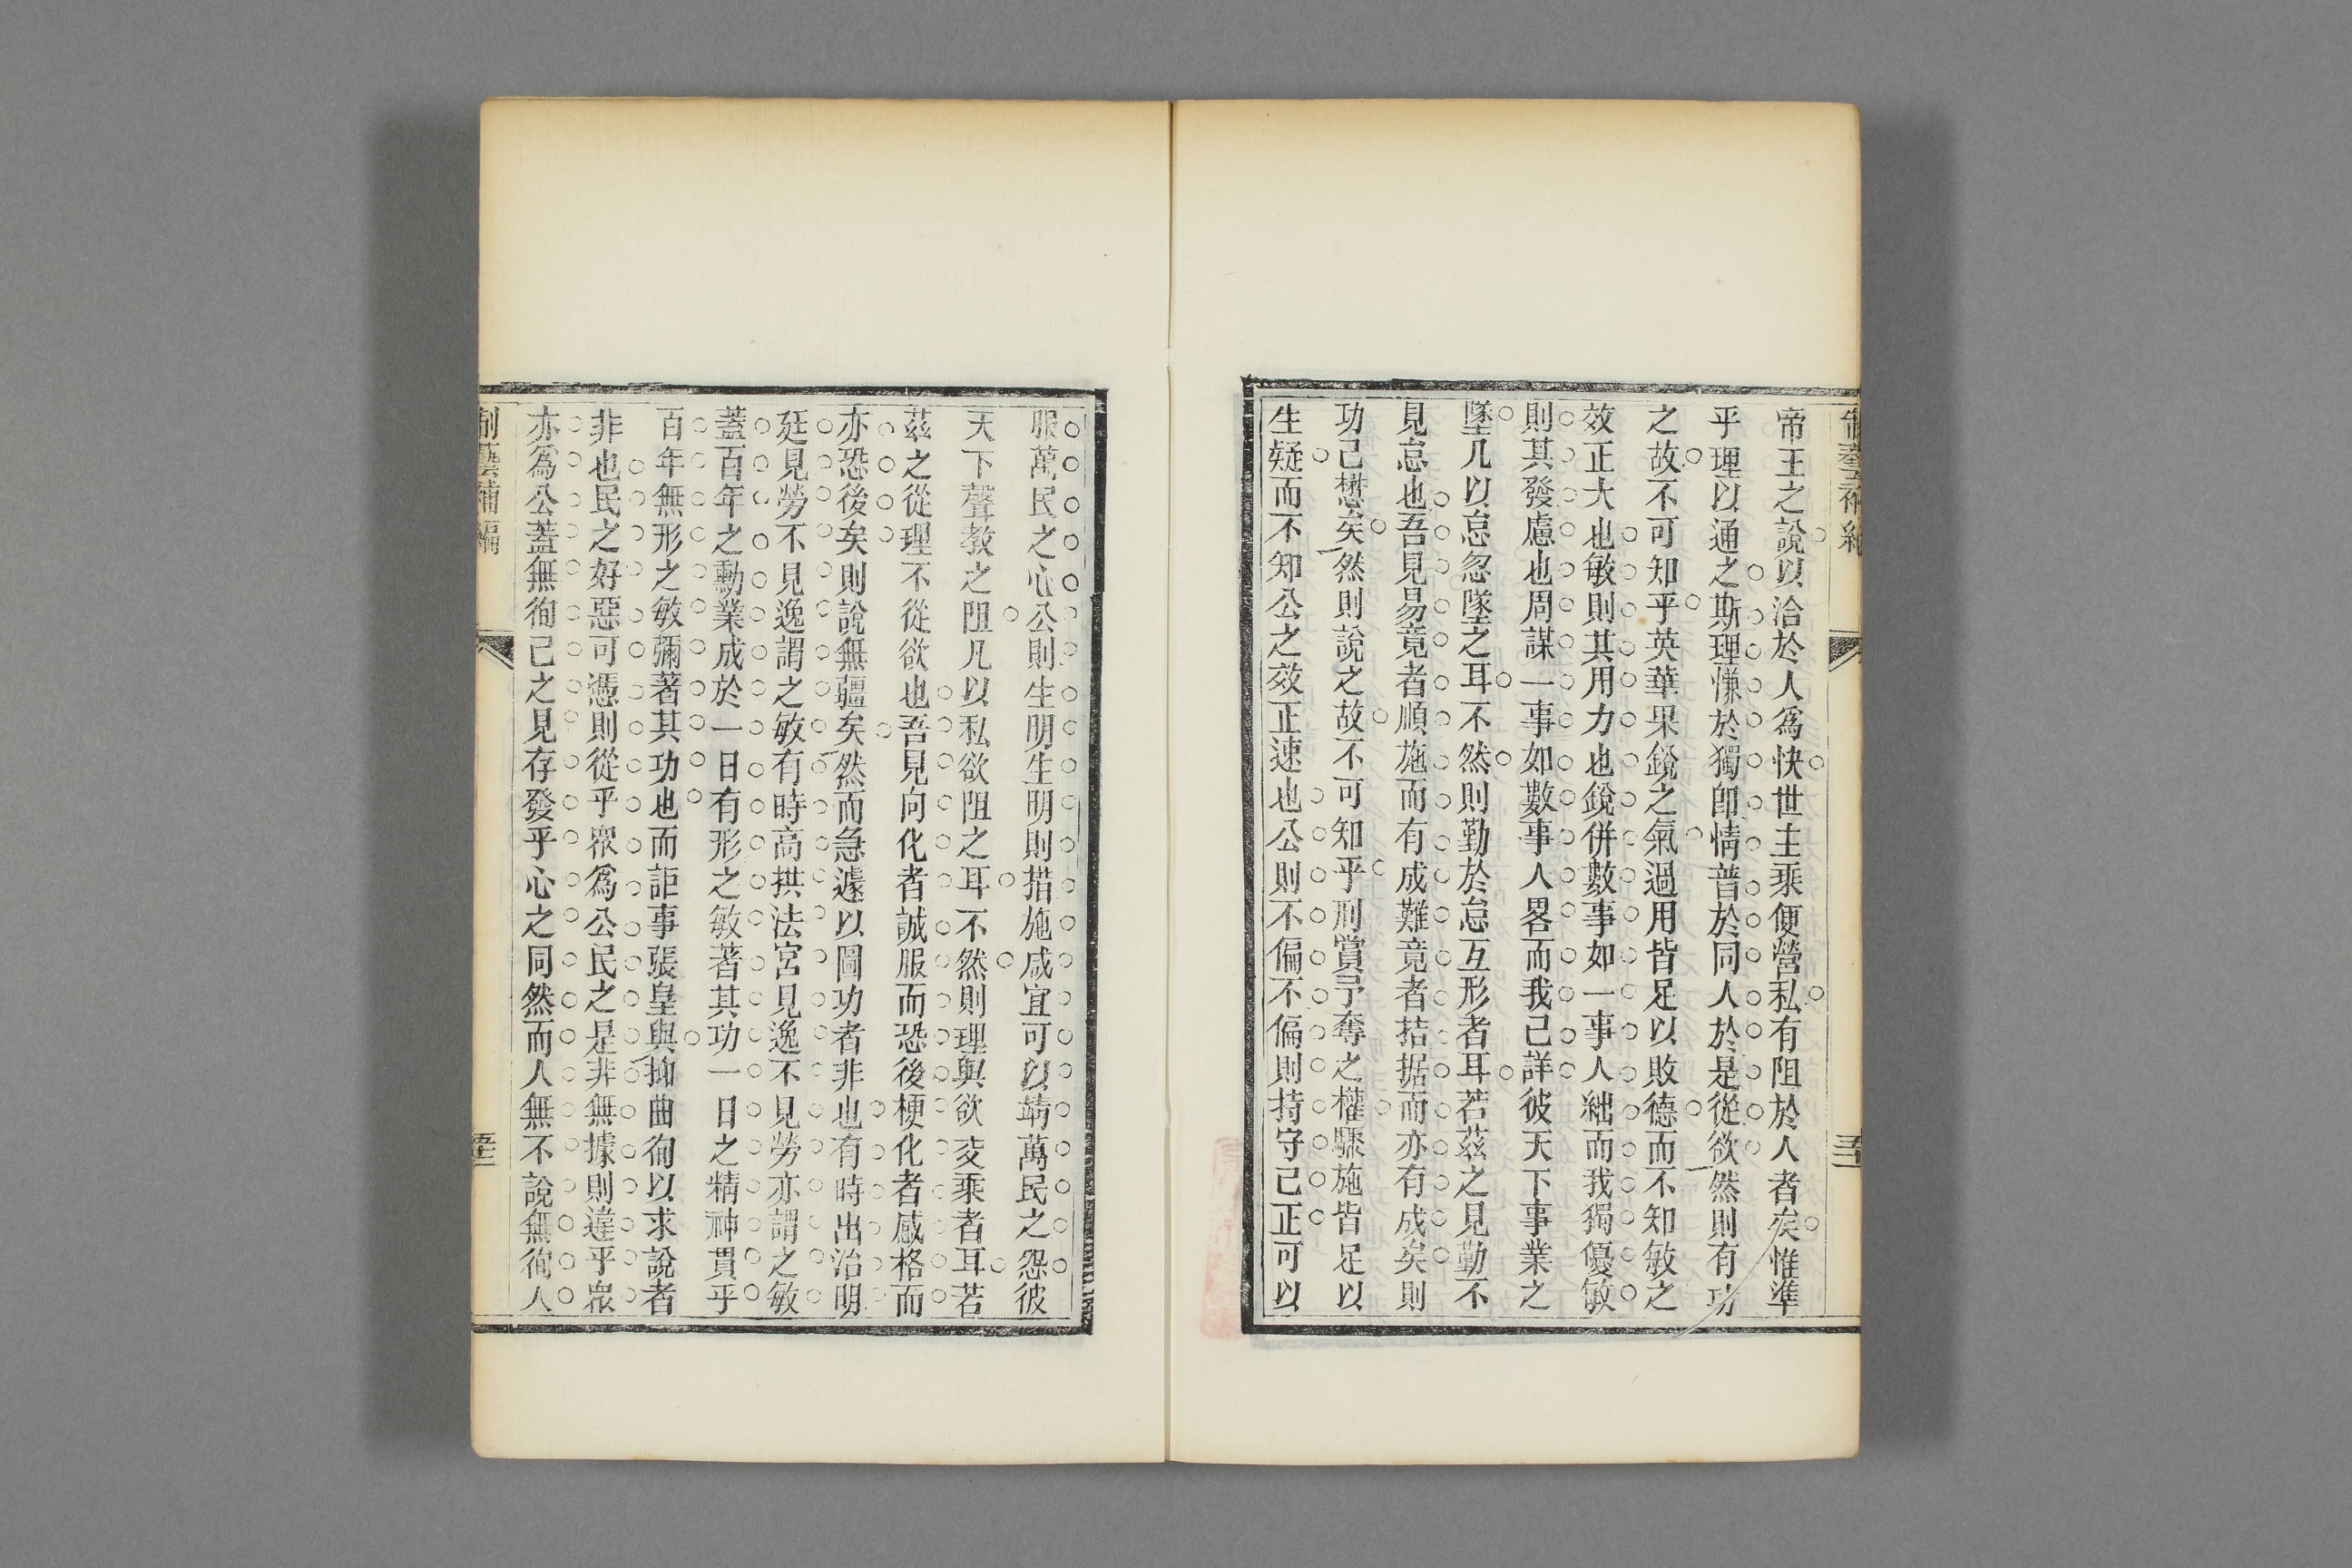 帝王之說以洽於人爲快世主乘便營私有阻於人者矣惟準
乎理以通之斯理慊於獨卽情普於同人於是從欲然則有功
之故不可知乎英華果銳之氣過用皆足以敗德而不知敏之
效正大也敏則其用力也銳併數事如一事人絀而我獨優敏
則其發慮也周謀一事如數事人畧而我己詳彼天下事業之
墜凡以怠忽墜之耳不然則勤於怠互形者耳若茲之見勤不
見怠也吾見易竟者順施而有成難竟者拮据而亦有成矣則
功己懋矣然則說之故不可知乎刑賞予奪之權驟施皆足以
生疑而不知公之效正速也公則不偏不偏則持守己正可以
服萬民之心公則生明生明則措施咸宜可以靖萬民之怨彼
天下聲教之阻凡以私欲阻之耳不然則理與欲交乘者耳若
茲之從理不從欲也吾見向化者誠服而恐後梗化者感格而
亦恐後矣則說無疆矣然而急遽以圖功者非也有時出治明
廷見勞不見逸謂之敏有時高拱法宮見逸不見勞亦謂之敏
蓋百年之勳業成於一日有形之敏著其功一日之精神貫乎
百年無形之敏彌著其功也而詎事張皇與抑曲徇以求說者
非也民之好惡可憑則從乎眾爲公民之是非無據則違乎眾
亦爲公蓋無徇己之見存發乎心之同然而人無不說無徇人
制藝補編